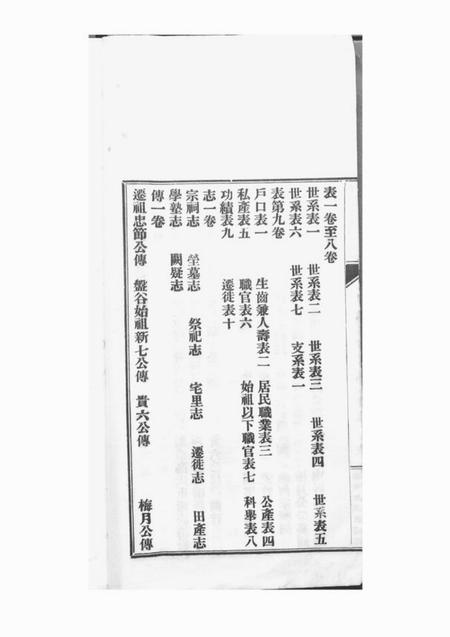 表一卷至八卷
世系表一 世系表二 世系表三 世系表四 世系表五
世系表六 世系表七 支系表一
表第九卷
戶口表一 生齒兼人壽表二 居民職業表三 公產表四
私產表五 職官表六 始祖以下職官表七 科舉表八
功績表九 遷徙表十
志一卷
宗祠志 塋墓志 祭祀志 宅里志 遷徙志 田產志
學塾志 闕疑志
傳一卷
遷祖忠節公傳 盤谷始祖新七公傳 貴六公傳 梅月公傳